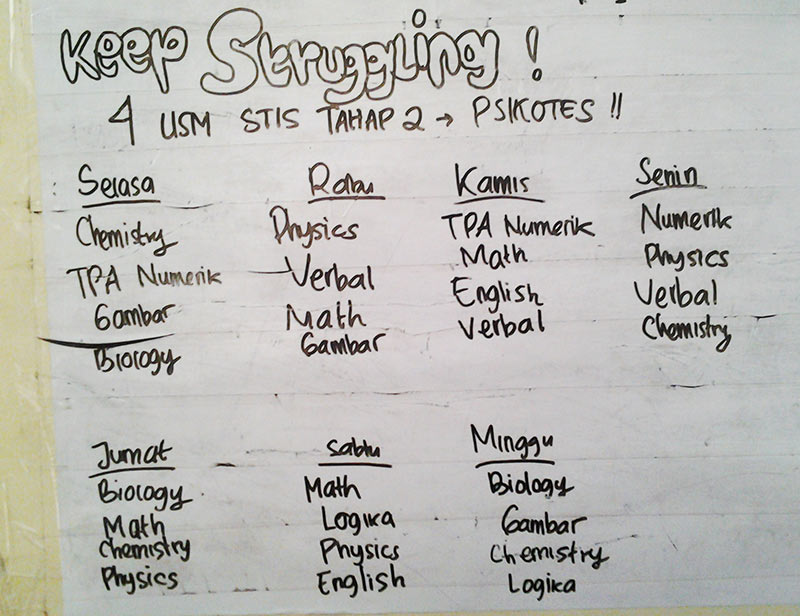 Keep Struggling !
4 USM STIS TAHAP 2 → PSIKOTES !!
Selasa
Chemistry
TPA Numerik
Gambar
Biology
Rabu
Physics
Verbal
Math
Gambar
Kamis
TPA Numerik
Math
English
Verbal
Senin
Numerik
Physics
Verbal
Chemistry
Jumat
Biology
Math
Chemistry
Physics
Sabtu
Math
Logika
Physics
English
Minggu
Biology
Gambar
Chemistry
Logika